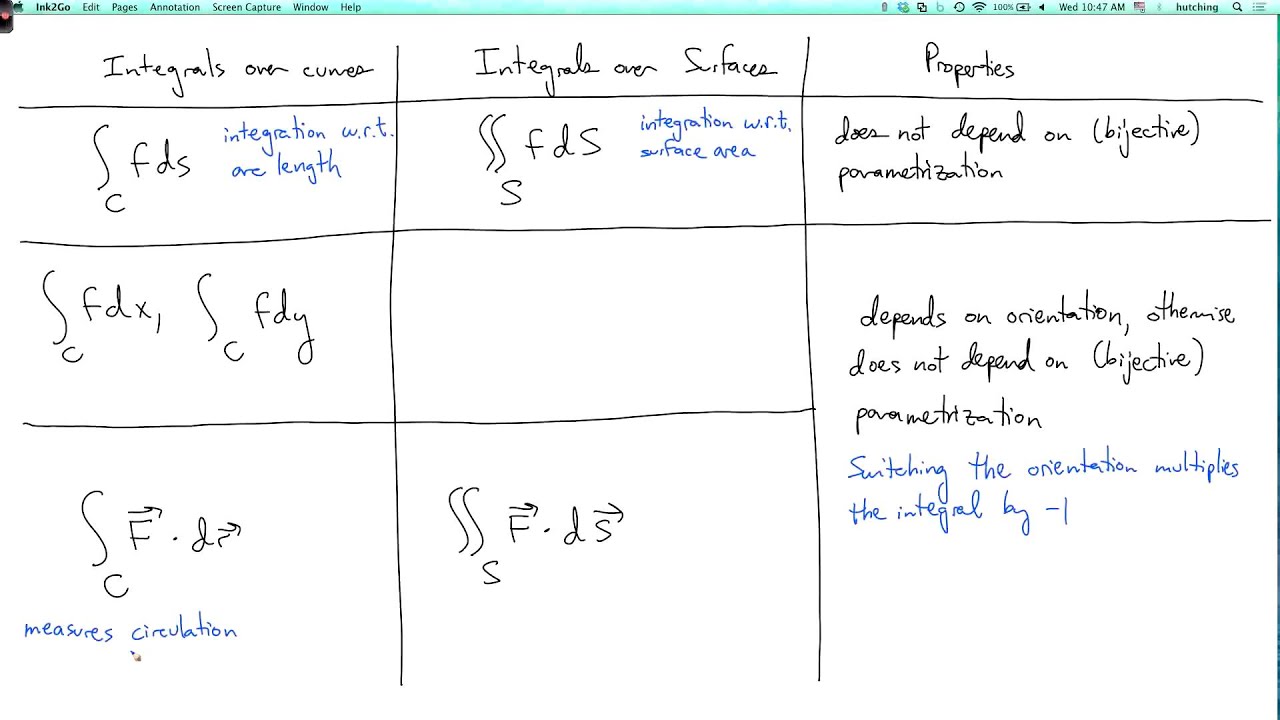 Ink2Go Edit Pages Annotation Screen Capture Window Help 100% Wed 10:47 AM hutching
Integrals over curves
Integrals over Surfaces
Properties
∫_C f ds
integration w.r.t.
arc length
∬_S f dS
integration w.r.t.
surface area
does not depend on (bijective)
parametrization
∫_C f dx, ∫_C f dy
depends on orientation, otherwise
does not depend on (bijective)
parametrization
Switching the orientation multiplies
the integral by -1
∫_C F⃗ · dr⃗
measures circulation
∬_S F⃗ · dS⃗